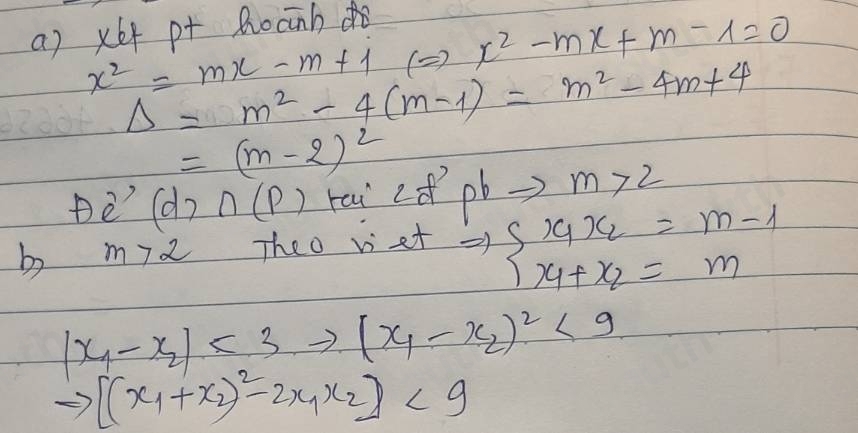 a) xét pt hoành độ
x² = mx - m + 1 (=> x² - mx + m - 1 = 0
Δ = m² - 4(m-1) = m² - 4m + 4
= (m-2)²
Để (d) ∩ (P) tại 2đ' pb → m > 2
b) m > 2 Theo vi et => { x₁x₂ = m - 1
x₁ + x₂ = m
|x₁ - x₂| < 3 → (x₁ - x₂)² < 9
=> [(x₁ + x₂)² - 2x₁x₂] < 9